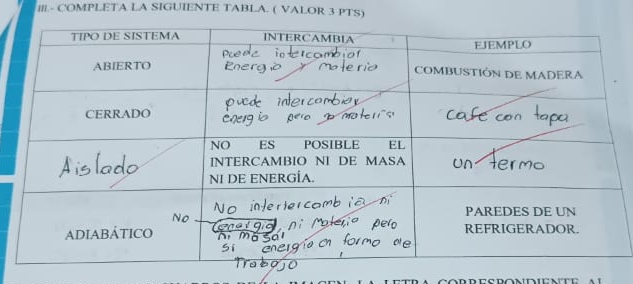 III.- COMPLETA LA SIGUIENTE TABLA. ( VALOR 3 PTS)
TIPO DE SISTEMA INTERCAMBIA EJEMPLO
ABIERTO
puede intercambiar
Energia y materia
COMBUSTIÓN DE MADERA
CERRADO
puede intercambiar
energia pero no materia
cafe con tapa
Aislado
NO ES POSIBLE EL
INTERCAMBIO NI DE MASA
NI DE ENERGÍA.
un termo
ADIABÁTICO
NO
No intertercambia ni
energia, ni materia pero
ni masa
si energia en forma de
Trabajo
PAREDES DE UN
REFRIGERADOR.